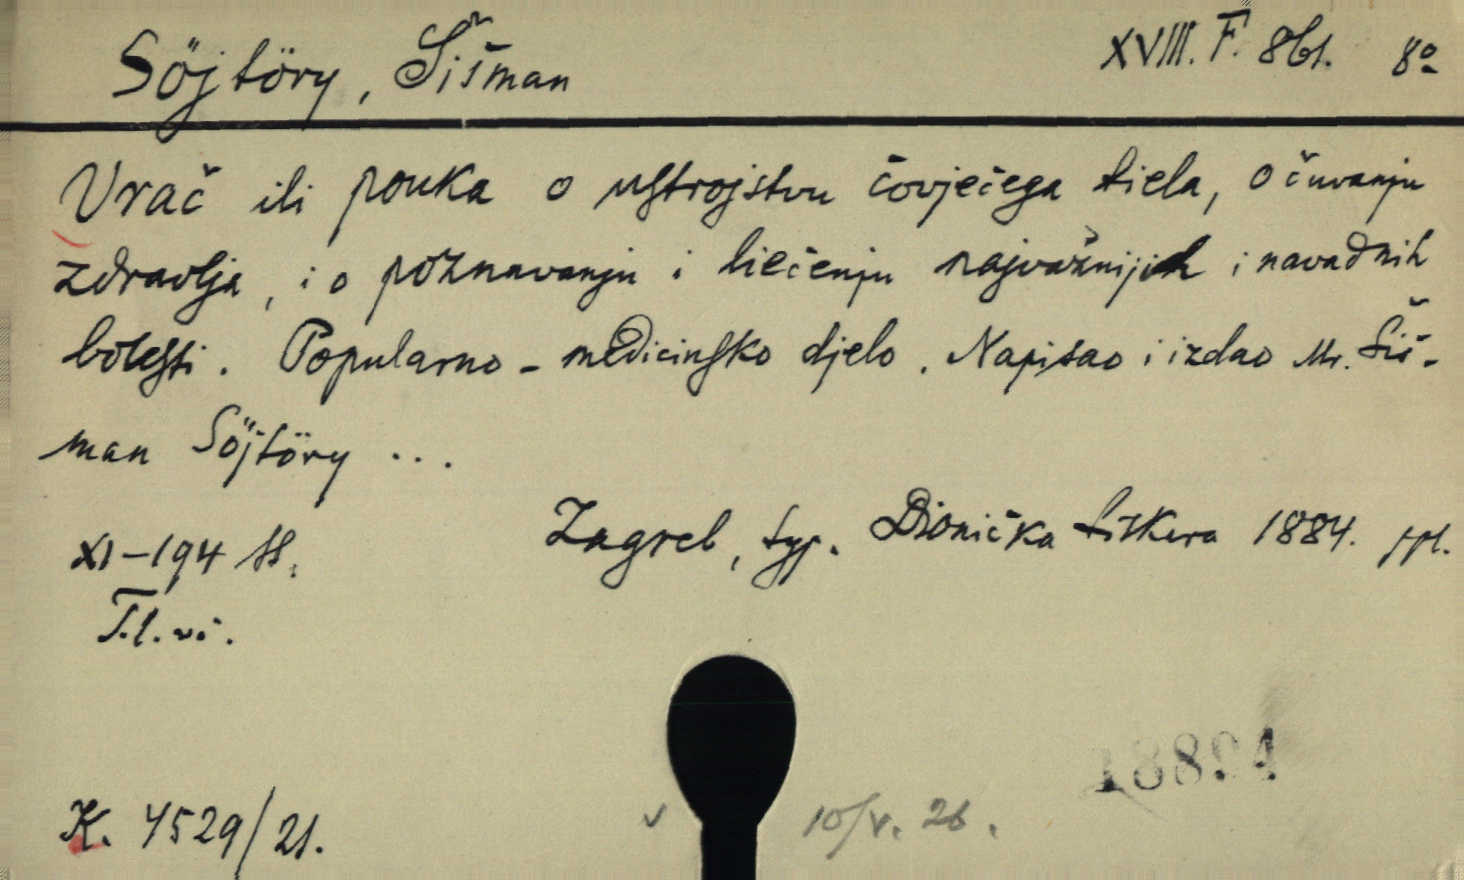 Söjtöry, Šišman XVIII. F. 861. 8º
Vrač ili pouka o ustrojstvu čovječega tiela, o čuvanju
zdravlja, i o poznavanju i liečenju najvažnijih i navadnih
bolesti. Popularno-medicinsko djelo. Napisao i izdao Mr. Šiš-
man Söjtöry ...
Zagreb, typ. Dionička tiskara 1884.
XI-194 SS.
T. l. vi.
18894
K. 4529/21. 10/V. 26.